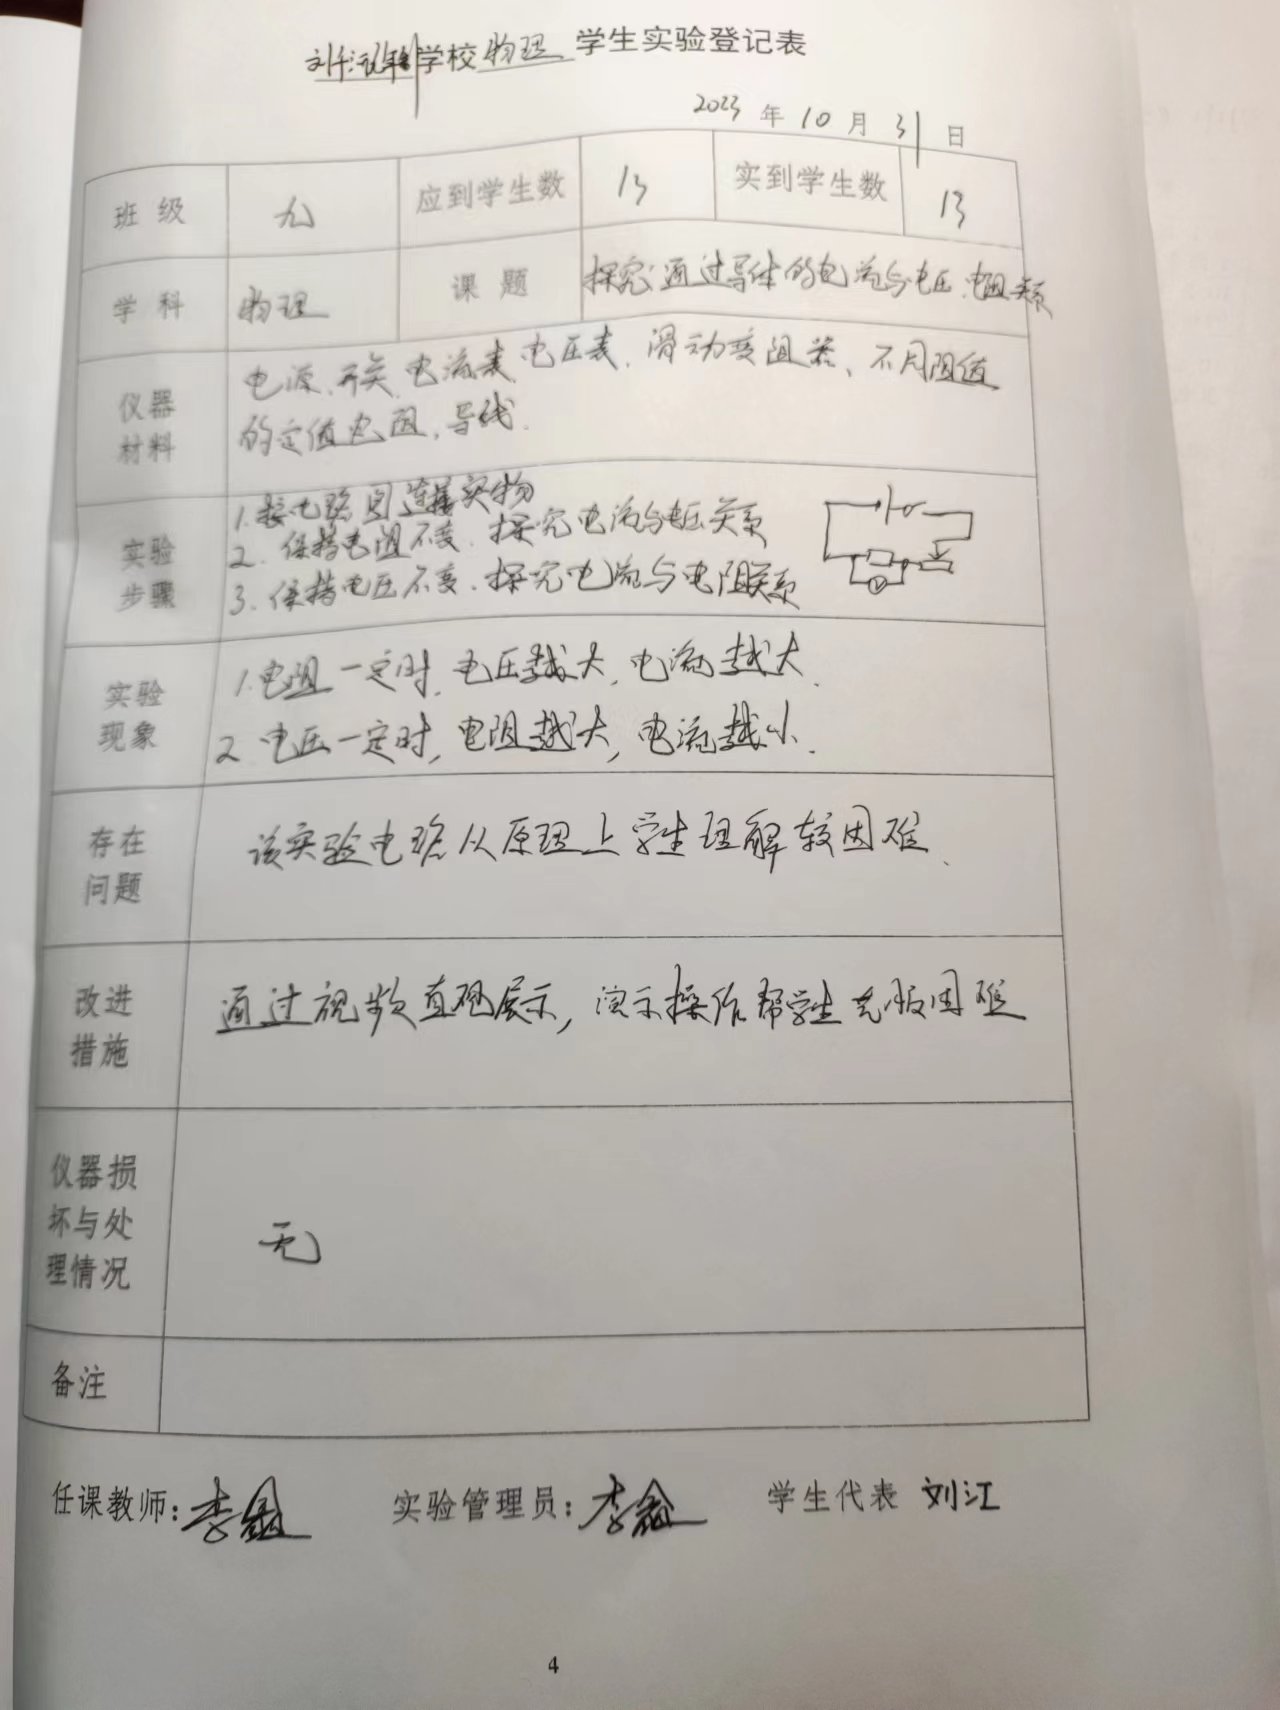 学校物理学生实验登记表
2023年10月31日
班级 九 应到学生数 13 实到学生数 13
学科 物理 课题 探究:通过导体的电流与电压、电阻关系
仪器材料 电源、开关、电流表、电压表、滑动变阻器、不同阻值
的定值电阻,导线.
实验步骤 1.按电路图连接实物
2.保持电阻不变.探究电流与电压关系
3.保持电压不变.探究电流与电阻关系
V
实验现象 1.电阻一定时,电压越大,电流越大.
2.电压一定时,电阻越大,电流越小.
存在问题 该实验电路从原理上学生理解较困难.
改进措施 通过视频直观展示,演示操作帮学生克服困难
仪器损坏与处理情况 无
备注
任课教师:李 实验管理员:李 学生代表 刘江
4